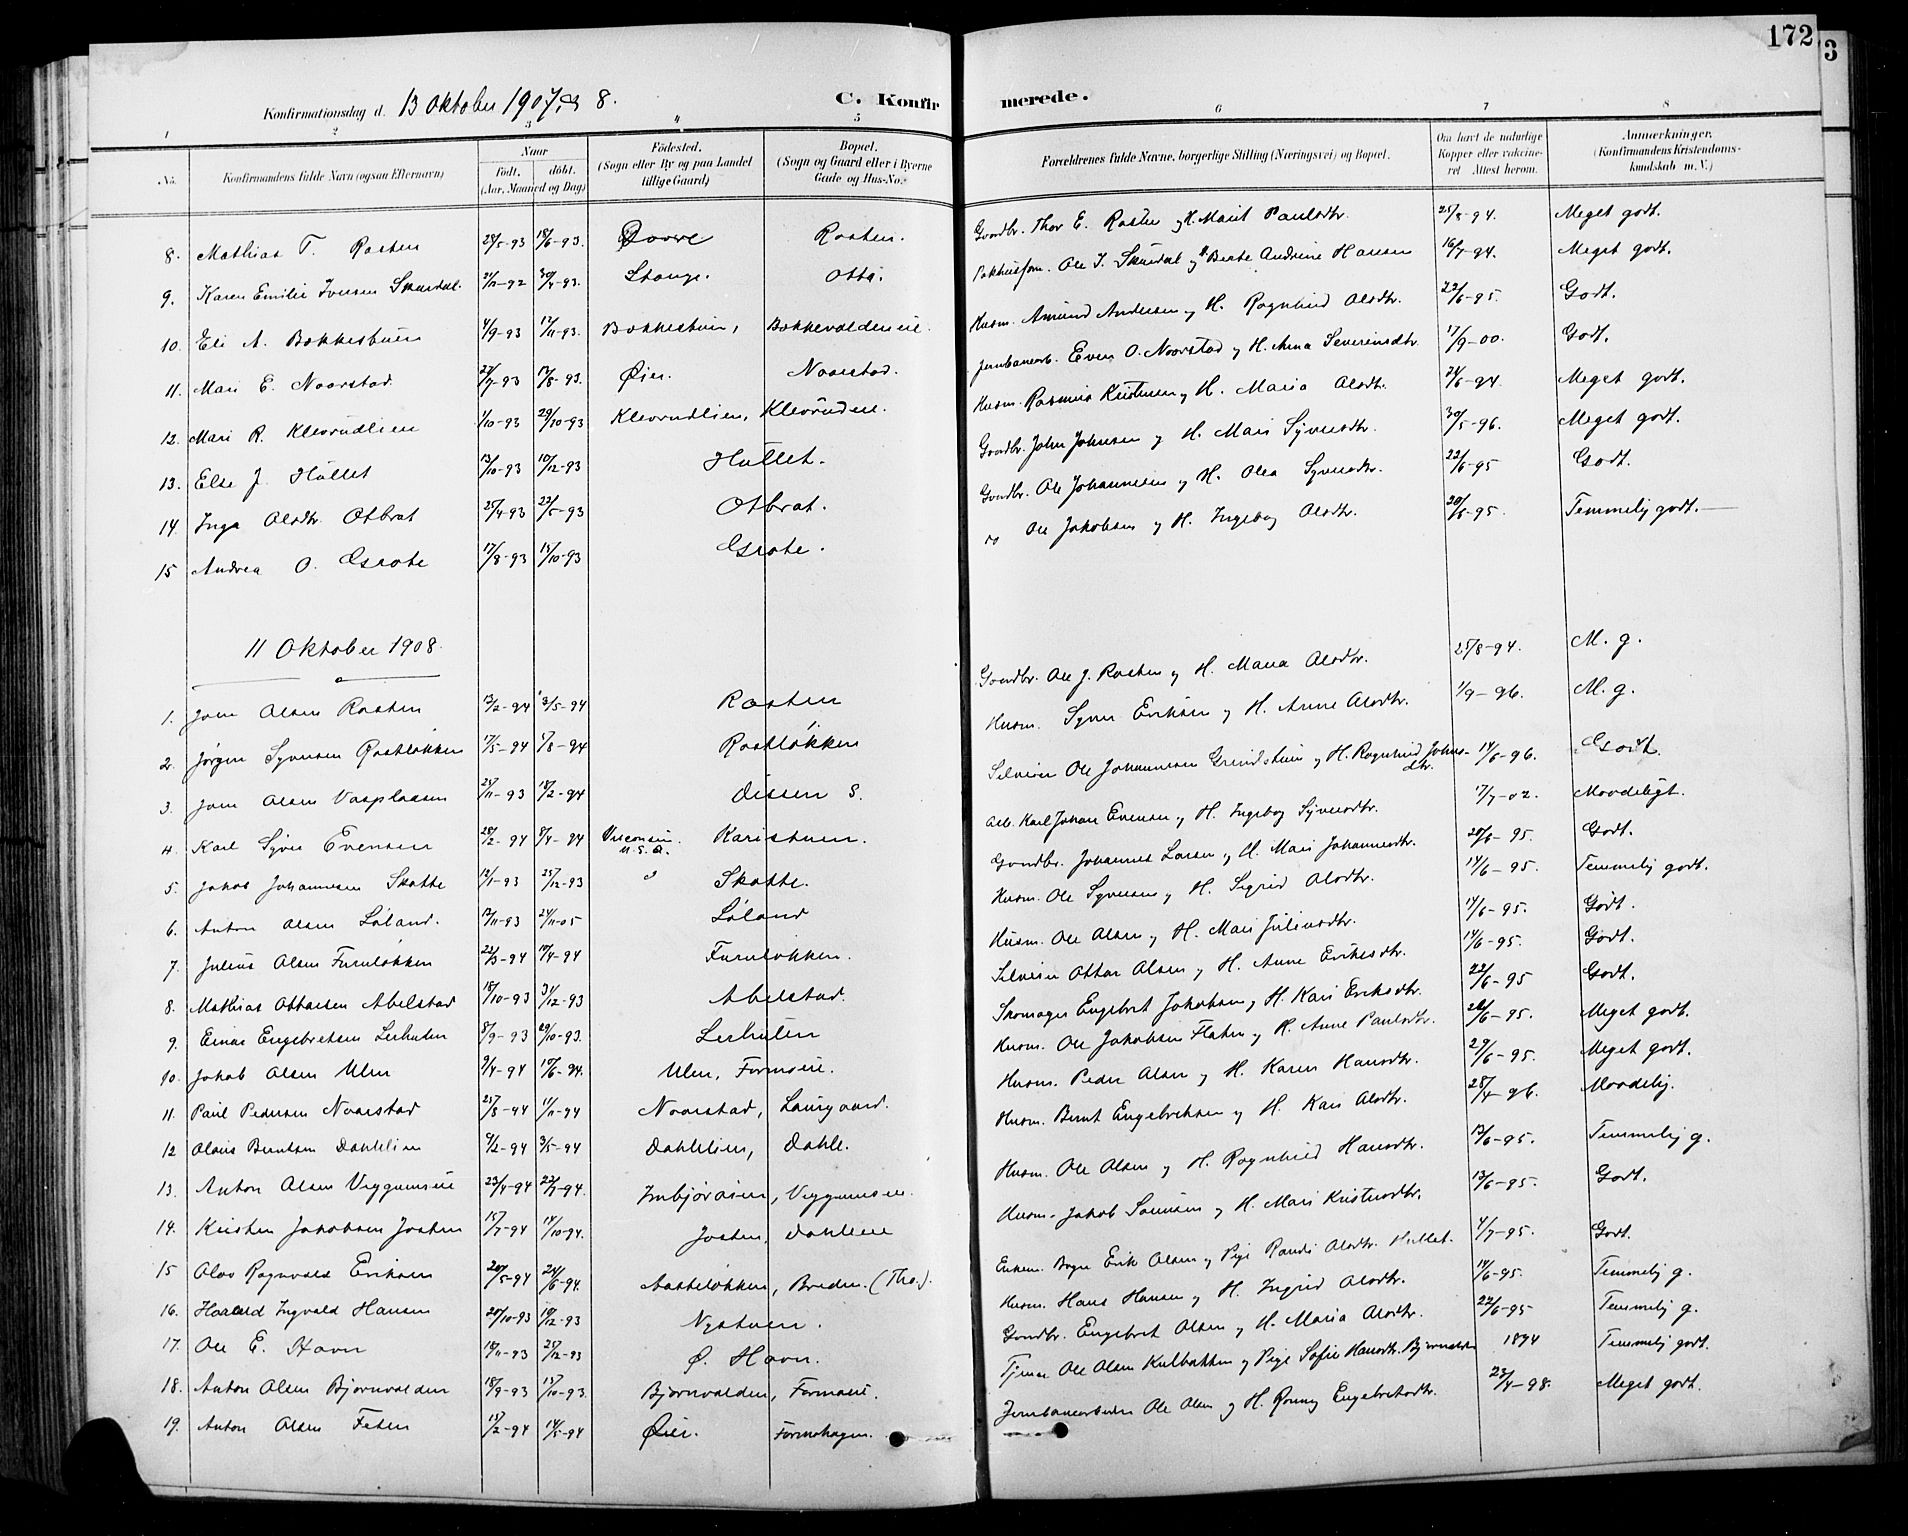 172
3
Konfirmationsdag d. 13 Oktober 1907, og 8. C. Konfirmerede.
1 2 3 4 5 6 7 8
No. Konfirmandens fulde Navn (ogsaa Efternavn) Naar født. døbt. (Aar, Maaned og Dag) Fødested. (Sogn eller By og paa Landet tillige Gaard) Bopæl. (Sogn og Gaard eller i Byerne Gade og Hus-No. Forældrenes fulde Navne, borgerlige Stilling (Næringsvei) og Bopæl. Om havt de naturlige Kopper eller vakcineret. Attest herom. Anmærkninger. (Konfirmandens Kristendomskundskab m. V.)
8. Mathias T. Rosten 28/5-93 18/6-93. Dovre Rosten. Gaardbr. Thor E. Rosten og H. Marit Paulsdtr. 25/8-94. Meget godt.
9. Karen Emilie Iversen Skardal 21/12-92 30/4-93. Stange. Otta. Pakhusfom. Ole I. Skardal og H. Berte Andrine Hansen 16/7-94. Meget godt.
10. Eli A. Bakkestuen 4/9-93 12/11-93. Bakkestuen, Bakkevoldeneie. Husm. Amund Andersen og H. Ragnhild Olsdtr. 22/6-95. Godt.
11. Mari E. Noarstad. 21/7-93 17/8-93. Øier. Noarstad. Jernbanearb. Even O. Noarstad og H. Anna Severinsdtr. 17/9-00. Godt.
12. Mari R. Kleivrudlien 1/10-93 29/10-93 Kleivrudlien, Kleivrudeie. Husm. Rasmus Kristensen og H. Maria Olsdtr. 24/6-94 Meget godt.
13. Else J. Hullet 13/10-93 10/12-93 Hullet. Gaardbr. John Johnsen og H. Mari Syversdtr. 30/5-96. Meget godt.
14. Inga Olsdtr. Otbrat 25/4-93 22/5-93 Otbrat. Gaardbr. Ole Johannesen og H. Olea Syversdtr. 22/6-95 Godt.
15 Andrea O. Grote 17/8-93 15/10-93 Grote. Ole Jakobsen og H. Ingeborg Olsdtr. 20/6-95. Temmelig godt.
11 Oktober 1908.
1. Jon Olsen Rosten 13/2-94 3/5-94 Rosten Gaardbr. Ole J. Rosten og H. Maria Olsdtr. 25/8-94. M. g.
2. Jørgen Syversen Rostløkken 17/5-94 /8-94 Rostløkken Husm. Syver Eriksen og H. Anne Olsdtr. 1/9-96. M. g.
3. Jon Olsen Vasplassen 24/11-93 18/2-94 Dissen S. Selveier Ole Johannesen Grindstuen og H. Ragnhild Johnsdtr. 14/6-96. Godt.
4. Karl Syver Evensen 28/2-94 8/4-94 Visconsin. U.S.A. Karistuen. Arb. Karl Johan Evensen og H. Ingeborg Syversdtr. 17/7-02. Maadeligt.
5. Jakob Johannesen Skotte 12/1-93 25/12-93 Skotte. Gaardbr. Johannes Larsen og H. Mari Johannesdtr. 20/6-95. Godt.
6. Anton Olsen Løland. 17/11-93 24/11-05 Løland Husm. Ole Syversen og H. Sigrid Olsdtr. 14/6-95. Temmelig godt.
7. Julius Olsen Furuløkken 22/3-94 17/4-94 Furuløkken. Husm. Ole Olsen og H. Mari Juliusdtr. 14/6-95. Godt.
8. Mathias Ottarsen Abelstad 15/10-93 3/12-93 Abelstad. Selveier Ottar Olsen og H. Anne Eriksdtr. 14/6-95. Godt.
9. Einar Engebretsen Lerhulen 8/9-93 29/10-93. Lerhulen Skomager Engebret Jakobsen og H. Kari Eriksdtr. 22/6-95 Godt.
10. Jakob Olsen Ulen 9/4-94 10/6-94. Ulen, Formoeie. Husm. Ole Jakobsen Flaten og H. Anne Paulsdtr. 26/6-95. Meget godt.
11. Paul Pedersen Noarstad 25/8-94 11/11-94 Noarstad, Laurgaard. Husm. Peder Olsen og H. Karen Hansdtr. 29/6-95. Meget godt.
12 Olaus Berntsen Dahlelien 9/2-94 3/5-94 Dahlelien, Dahle. Husm. Bernt Engebretsen og H. Kari Olsdtr. 28/4-96. Maadelig.
13. Anton Olsen Veggumseie 23/4-94 22/7-94. Veggumseie. Husm. Ole Olsen og H. Ragnhild Hansdtr. 13/6-95. Temmelig g.
14. Kristen Jakobsen Josten 15/7-94 14/10-94. Josten, Dahleeie Husm. Jakob Sørensen og H. Mari Kristensdtr. 13/6-95. Godt.
15 Olav Ragnvald Eriksen 20/5-94 24/6-94. Aasteløkken, Breden. (Tho.). Enkem. Erik Olsen og Pige Randi Olsdtr. Hullet. 4/7-95. Godt.
16. Harald Ingvald Hansen 20/10-93 10/12-93 Nystuen. Husm. Hans Hansen og H. Ingrid Olsdtr. 14/6-95. Temmelig g.
17. Ole E. Havn 18/11-93 25/12-93 Ø. Havn. Gaardbr. Engebret Olsen og H. Maria Olsdtr. 22/6-95 Temmelig g.
18. Anton Olsen Bjørnvolden 18/9-93 15/10-93. Bjørnvolden, Formoeie. Tjener Ole Olsen Kulbakken og Pige Sofie Hansdtr. 1894 Temmelig godt.
19. Anton Olsen Feten 15/2-94 14/5-94 Øier. Formohagen. Jernbanearbeider Ole Olsen og H. Ronnog Engebretsdtr. 23/4-98. Meget godt.